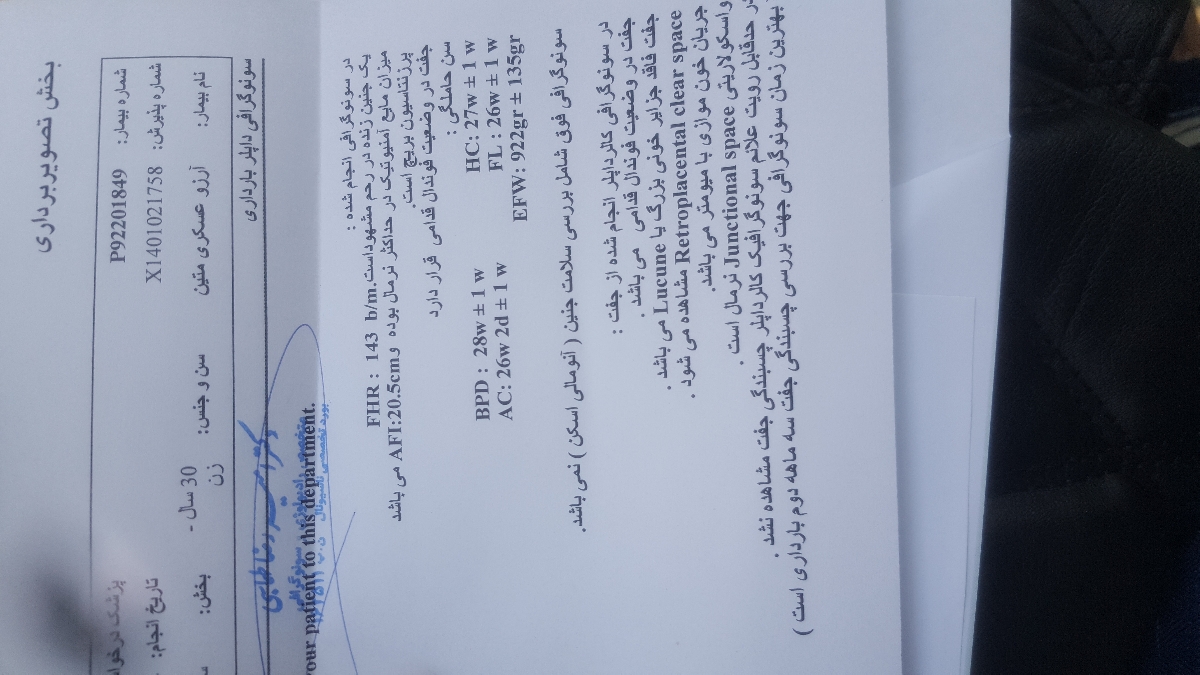 بخش تصویربرداری
شماره بیمار: P92201849
شماره پذیرش: X1401021758
پزشک درخوا
تاریخ انجام:
نام بیمار: آرزو عسکری متین
سن و جنس: 30 سال - زن
بخش:
سونوگرافی داپلر بارداری
your patient to this department.
در سونوگرافی انجام شده :
یک جنین زنده در رحم مشهوداست. FHR : 143 b/m
میزان مایع آمنیوتیک در حداکثر نرمال بوده و AFI:20.5cm می باشد
پرزنتاسیون بریچ است.
جفت در وضعیت فوندال قدامی قرار دارد
سن حاملگی :
BPD : 28w ± 1 w HC: 27w ± 1 w
AC: 26w 2d ± 1 w FL : 26w ± 1 w
EFW: 922gr ± 135gr
سونوگرافی فوق شامل بررسی سلامت جنین ( آنومالی اسکن ) نمی باشد.
در سونوگرافی کالرداپلر انجام شده از جفت :
جفت در وضعیت فوندال قدامی می باشد .
جفت فاقد جزایر خونی بزرگ یا Lucune می باشد .
Retroplacental clear space مشاهده می شود .
جریان خون موازی با میومتر می باشد.
واسکولاریتی Junctional space نرمال است .
در حدقابل رویت علائم سونوگرافیک کالرداپلر چسبندگی جفت مشاهده نشد .
بهترین زمان سونوگرافی جهت بررسی چسبندگی جفت سه ماهه دوم بارداری است )